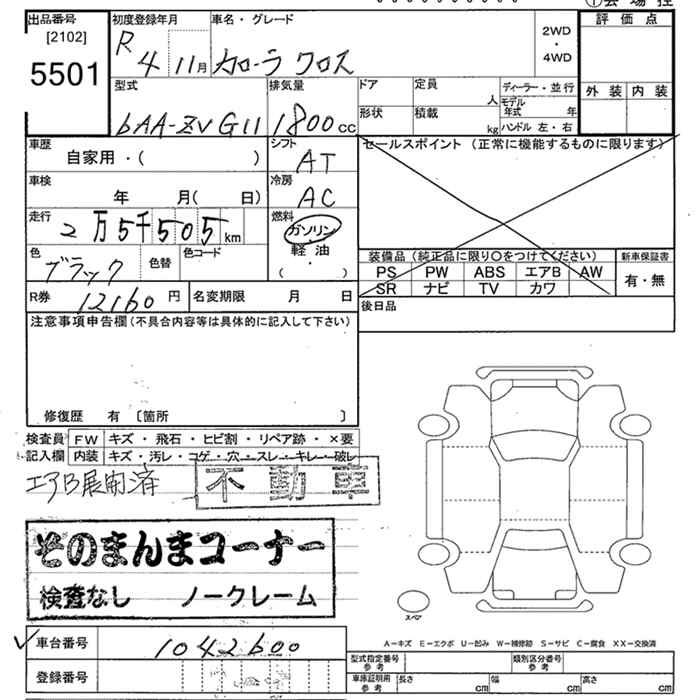 出品番号
[2102]
5501
初度登録年月
R 4 11月
車名・グレード
カローラ クロス
2WD
・
4WD
評価点
外装 内装
型式
6AA-ZVG11
排気量
1800cc
ドア
定員
人
形状
積載
kg
ディーラー・並行
モデル年式 年
ハンドル 左・右
車歴
自家用・( )
シフト
AT
セールスポイント(正常に機能するものに限ります)
車検
年 月( 日)
冷房
AC
走行
2万5千505km
燃料
ガソリン・
軽油
( )
色
ブラック
色替
色コード
装備品(純正品に限り〇をつけてください)
PS PW ABS エアB AW
SR ナビ TV カワ
新車保証書
有・無
R券
12160円
名変期限 月 日
後日品
注意事項申告欄(不具合内容等は具体的に記入して下さい)
修復歴 有 〔箇所 〕
検査員記入欄
FW キズ・飛石・ヒビ割・リペア跡・×要
内装 キズ・汚レ・コゲ・穴・スレ・キレ・破レ
エアB展開済
不動車
そのまんまコーナー
検査なし ノークレーム
スペア
車台番号
1042600
登録番号
A-キズ E-エクボ U-凹み W-補修跡 S-サビ C-腐食 XX-交換済
型式指定番号
参考
類別区分番号
参考
車庫証明用
参考
長さ cm 幅 cm 高さ cm